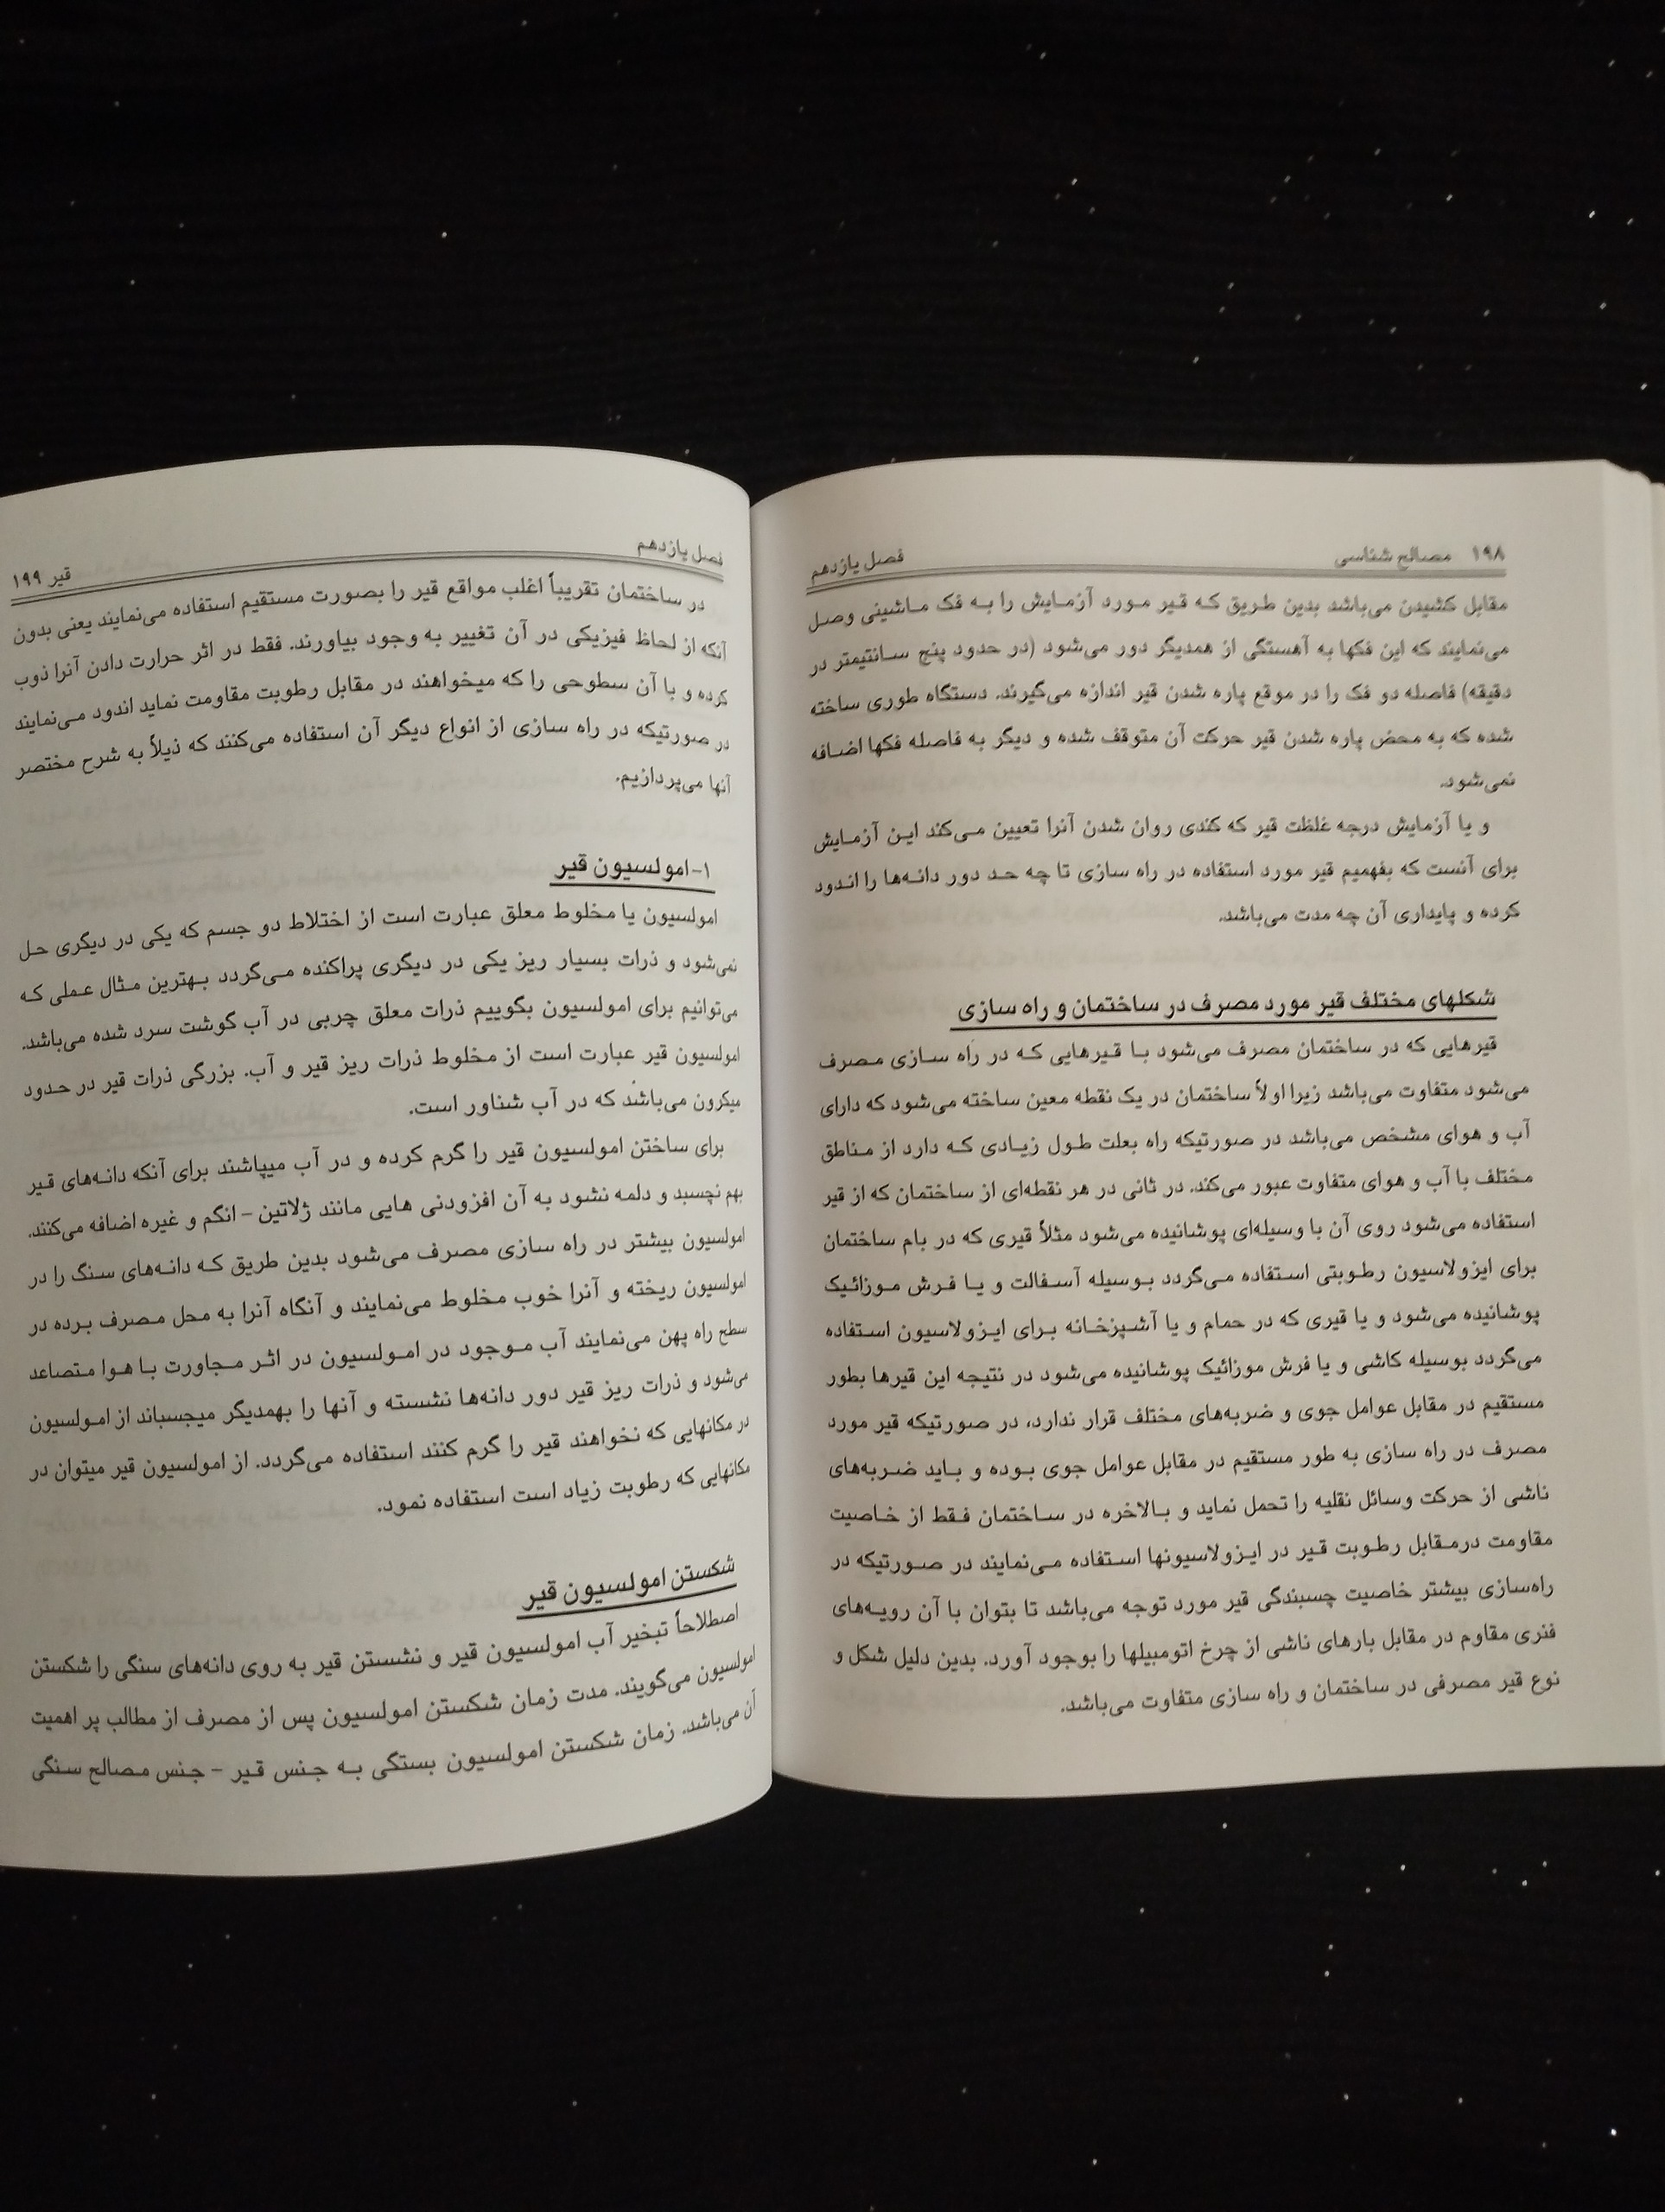 ۱۹۸ مصالح شناسی فصل یازدهم
مقابل کشیدن می‌باشد بدین طریق که قیر مورد آزمایش را به فک ماشینی وصل
می‌نمایند که این فکها به آهستگی از همدیگر دور می‌شود (در حدود پنج سانتیمتر در
دقیقه) فاصله دو فک را در موقع پاره شدن قیر اندازه می‌گیرند. دستگاه طوری ساخته
شده که به محض پاره شدن قیر حرکت آن متوقف شده و دیگر به فاصله فکها اضافه
نمی‌شود.
و یا آزمایش درجه غلظت قیر که کندی روان شدن آنرا تعیین می‌کند این آزمایش
برای آنست که بفهمیم قیر مورد استفاده در راه سازی تا چه حد دور دانه‌ها را اندود
کرده و پایداری آن چه مدت می‌باشد.
شکلهای مختلف قیر مورد مصرف در ساختمان و راه سازی
قیرهایی که در ساختمان مصرف می‌شود با قیرهایی که در راه سازی مصرف
می‌شود متفاوت می‌باشد زیرا اولاً ساختمان در یک نقطه معین ساخته می‌شود که دارای
آب و هوای مشخص می‌باشد در صورتیکه راه بعلت طول زیادی که دارد از مناطق
مختلف با آب و هوای متفاوت عبور می‌کند. در ثانی در هر نقطه‌ای از ساختمان که از قیر
استفاده می‌شود روی آن با وسیله‌ای پوشانیده می‌شود مثلاً قیری که در بام ساختمان
برای ایزولاسیون رطوبتی استفاده می‌گردد بوسیله آسفالت و یا فرش موزائیک
پوشانیده می‌شود و یا قیری که در حمام و یا آشپزخانه برای ایزولاسیون استفاده
می‌گردد بوسیله کاشی و یا فرش موزائیک پوشانیده می‌شود در نتیجه این قیرها بطور
مستقیم در مقابل عوامل جوی و ضربه‌های مختلف قرار ندارد، در صورتیکه قیر مورد
مصرف در راه سازی به طور مستقیم در مقابل عوامل جوی بوده و باید ضربه‌های
ناشی از حرکت وسائل نقلیه را تحمل نماید و بالاخره در ساختمان فقط از خاصیت
مقاومت درمقابل رطوبت قیر در ایزولاسیونها استفاده می‌نمایند در صورتیکه در
راه‌سازی بیشتر خاصیت چسبندگی قیر مورد توجه می‌باشد تا بتوان با آن رویه‌های
فنری مقاوم در مقابل بارهای ناشی از چرخ اتومبیلها را بوجود آورد. بدین دلیل شکل و
نوع قیر مصرفی در ساختمان و راه سازی متفاوت می‌باشد.
فصل یازدهم قیر ۱۹۹
در ساختمان تقریباً اغلب مواقع قیر را بصورت مستقیم استفاده می‌نمایند یعنی بدون
آنکه از لحاظ فیزیکی در آن تغییر به وجود بیاورند. فقط در اثر حرارت دادن آنرا ذوب
کرده و با آن سطوحی را که میخواهند در مقابل رطوبت مقاومت نماید اندود می‌نمایند
در صورتیکه در راه سازی از انواع دیگر آن استفاده می‌کنند که ذیلاً به شرح مختصر
آنها می‌پردازیم.
۱-امولسیون قیر
امولسیون یا مخلوط معلق عبارت است از اختلاط دو جسم که یکی در دیگری حل
نمی‌شود و ذرات بسیار ریز یکی در دیگری پراکنده می‌گردد بهترین مثال عملی که
می‌توانیم برای امولسیون بگوییم ذرات معلق چربی در آب گوشت سرد شده می‌باشد.
امولسیون قیر عبارت است از مخلوط ذرات ریز قیر و آب. بزرگی ذرات قیر در حدود
میکرون می‌باشد که در آب شناور است.
برای ساختن امولسیون قیر را گرم کرده و در آب میپاشند برای آنکه دانه‌های قیر
بهم نچسبد و دلمه نشود به آن افزودنی هایی مانند ژلاتین - انگم و غیره اضافه می‌کنند.
امولسیون بیشتر در راه سازی مصرف می‌شود بدین طریق که دانه‌های سنگ را در
امولسیون ریخته و آنرا خوب مخلوط می‌نمایند و آنگاه آنرا به محل مصرف برده در
سطح راه پهن می‌نمایند آب موجود در امولسیون در اثر مجاورت با هوا متصاعد
می‌شود و ذرات ریز قیر دور دانه‌ها نشسته و آنها را بهمدیگر میچسباند از امولسیون
در مکانهایی که نخواهند قیر را گرم کنند استفاده می‌گردد. از امولسیون قیر میتوان در
مکانهایی که رطوبت زیاد است استفاده نمود.
شکستن امولسیون قیر
اصطلاحاً تبخیر آب امولسیون قیر و نشستن قیر به روی دانه‌های سنگی را شکستن
امولسیون می‌گویند. مدت زمان شکستن امولسیون پس از مصرف از مطالب پر اهمیت
آن می‌باشد. زمان شکستن امولسیون بستگی به جنس قیر - جنس مصالح سنگی